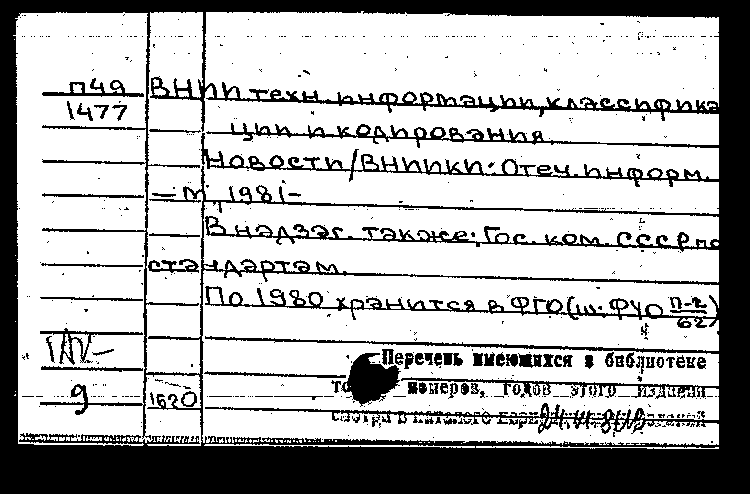 П49 ВНИИ техн. информации, классифика
1477 ции и кодирования.
Новости/ВНИИКИ: Отеч. информ.
— М., 1981-
В надзаг. также: Гос. ком. СССР по
стандартам.
По 1980 хранится в ФГО (ш. ФЧО П-2/62)
Перечень имеющихся в библиотеке
номеров, годов этого издания
9 1620 смотри в каталоге